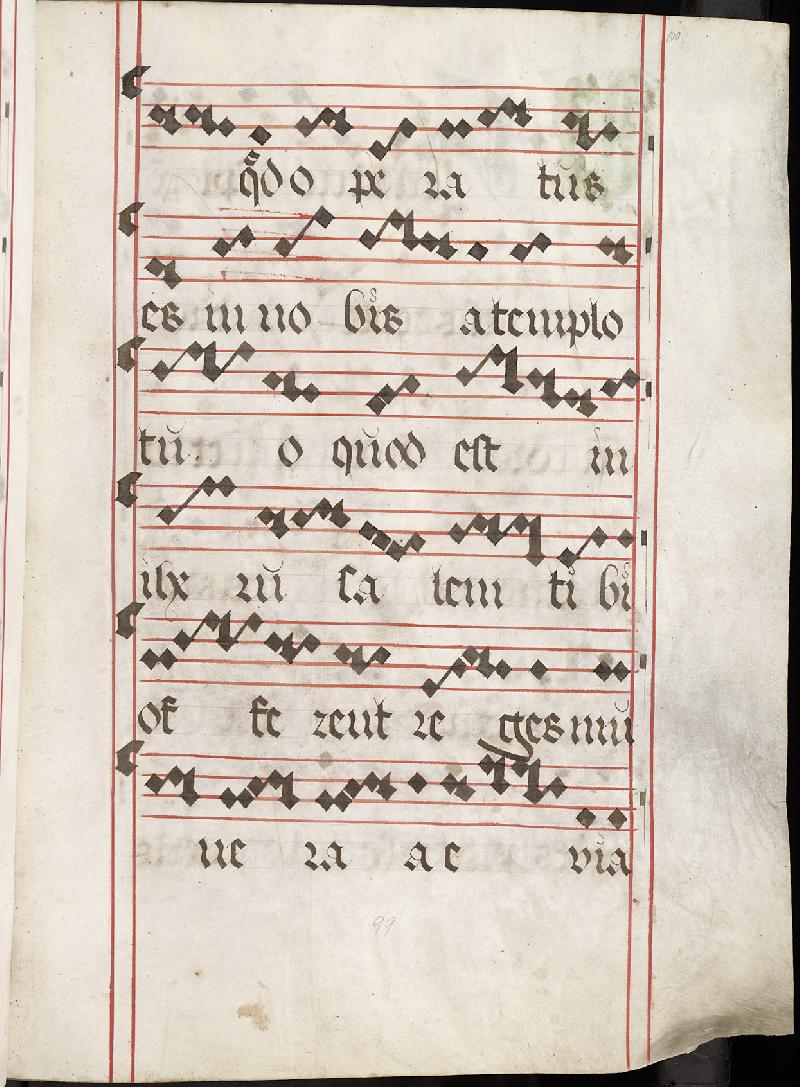 100
qd o pe ra tus
es in no bis a templo
tu o quod est in
ihe ru sa lem ti bi
of fe rent re ges mu
ne ra a e via
99